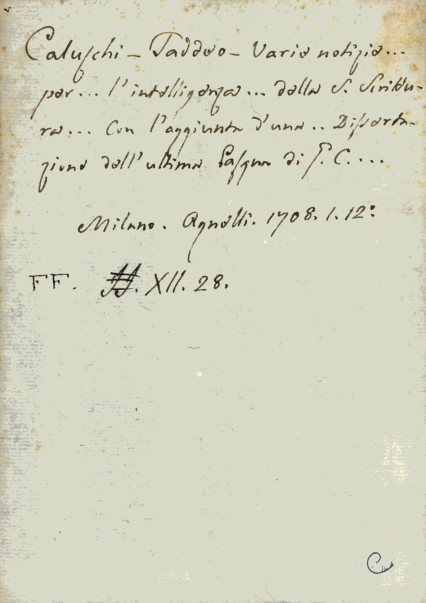 Caluschi - Taddeo - Varie notizie...
per... l'intelligenza... della S. Scrittu-
ra... Con l'aggiunta d'una.. Disserta-
zione dell'ultima Pasqua di G. C....
Milano. Agnelli. 1708. 1. 12°
FF. XII. 28.
C